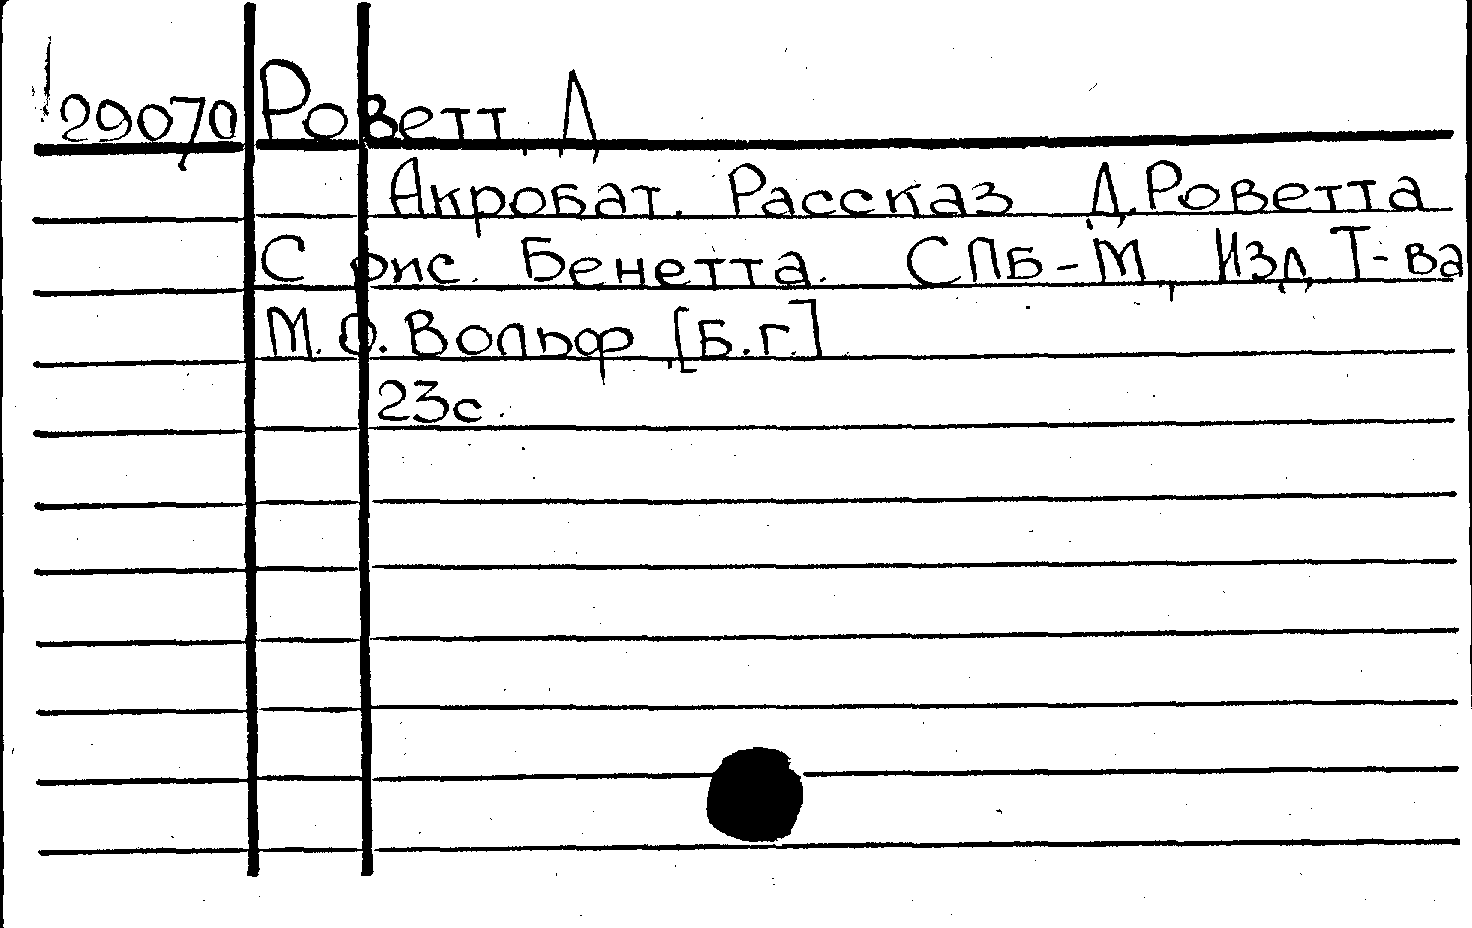 29070 Роветт, Д
Акробат. Рассказ Д. Роветта
С рис. Бенетта. СПБ-М, Изд. Т-ва
М.О. Вольф, [Б.г.]
23с.